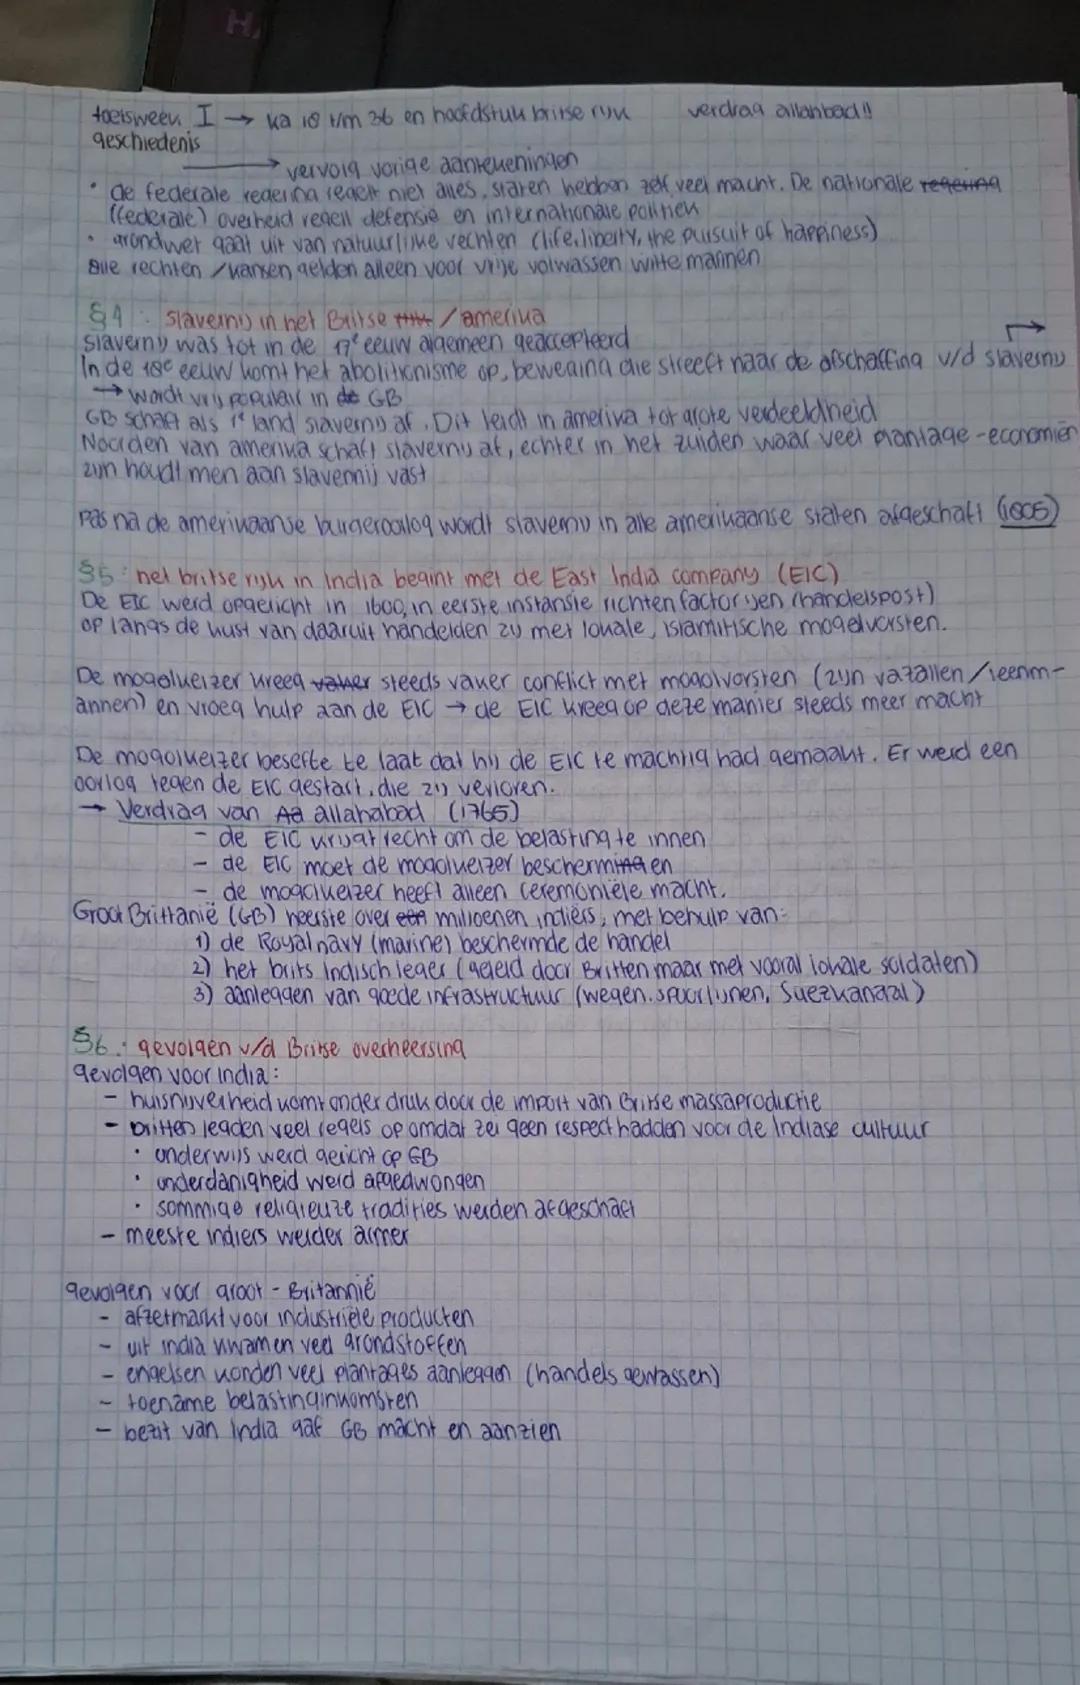 toetsweek I → ka 18 t/m 36 en hoofdstuk britse rijk verdrag allanbad!!
geschiedenis
→ vervolg vorige aantekeningen
• de federale regering regelt niet alles, staten hebben zelf veel macht. De nationale regering
(federale) overheid regelt defensie en internationale politiek
• grondwet gaat uit van natuurlijke rechten (life, liberty, the pursuit of happiness)
alle rechten / kansen gelden alleen voor vrije volwassen witte mannen
§4 : slavernij in het Britse / amerika
slavernij was tot in de 17e eeuw algemeen geaccepteerd
In de 18e eeuw komt het abolitionisme op, beweging die streeft naar de afschaffing v/d slavernij
→ wordt vrij populair in de GB
GB schaft als 1e land slavernij af. Dit leidt in amerika tot grote verdeeldheid
Noorden van amerika schaft slavernij af, echter in het zuiden waar veel plantage-economieën
zijn houdt men aan slavernij vast
pas na de amerikaanse burgeroorlog wordt slavernij in alle amerikaanse staten afgeschaft
§5 : het britse rijk in India begint met de East India company (EIC)
De EIC werd opgericht in 1600, in eerste instansie richten factorijen (handelspost)
op langs de kust van daaruit handelden zij met lokale, islamitische mogelvorsten.
De mogolkeizer kreeg vaker steeds vaker conflict met mogolvorsten (zijn vazallen / leenm-
annen) en vroeg hulp aan de EIC → de EIC kreeg op deze manier steeds meer macht
De mogolkeizer besefte te laat dat hij de EIC te machtig had gemaakt. Er werd een
oorlog tegen de EIC gestart, die zij verloren.
→ Verdrag van Aa allahabad (1765)
- de EIC krijgt recht om de belasting te innen
- de EIC moet de mogolkeizer bescherminen
- de mogolkeizer heeft alleen ceremoniële macht.
Groot Brittanië (GB) heerste over een miljoenen indiërs, met behulp van:
1) de Royal navy (marine) beschermde de handel
2) het brits Indisch leger (geleid door Britten maar met vooral lokale soldaten)
3) aanleggen van goede infrastructuur (wegen, spoorlijnen, Suezkanaal)
§6 : gevolgen v/d Britse overheersing
gevolgen voor India:
- huisnijverheid komt onder druk door de import van Britse massaproductie
- britten legden veel regels op omdat zei geen respect hadden voor de Indiase cultuur
• onderwijs werd gericht op GB
• onderdanigheid werd afgedwongen
• sommige religieuze tradities werden afgeschaft
- meeste indiers werder armer
gevolgen voor groot-Britannië
- afzetmarkt voor industriële producten
- uit india kwamen veel grondstoffen
- engelsen konden veel plantages aanleggen (handels gewassen)
- toename belastinginkomsten
- bezit van India gaf GB macht en aanzien